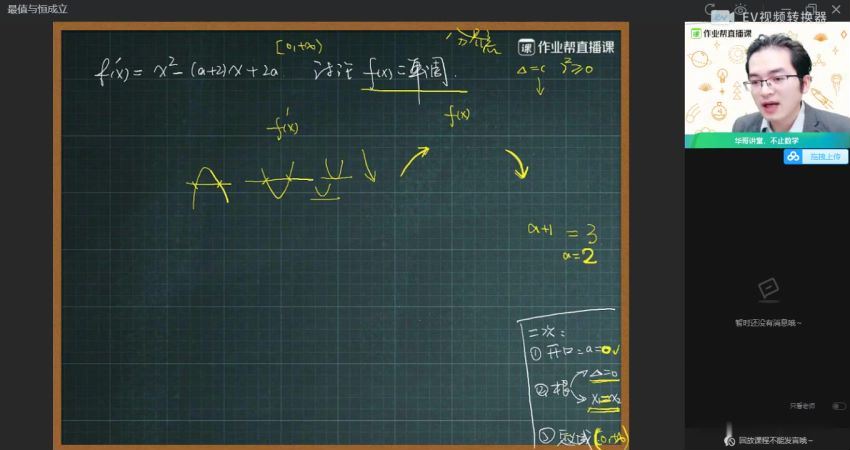 最值与恒成立
EV视频转换器
[0,+∞)
作业帮直播课
f'(x) = x²-(a+2)x+2a 讨论 f(x)=单调.
Δ=( )²≥0
f'(x)
f(x)
a+1 = 3
a=2
二次:
① 开口=a=0√
② 根 Δ=0
x₁=x₂
③ 定义域(0,+∞)
作业帮直播课
华哥讲堂,不止数学
拖拽上传
暂时还没有消息哦~
只看老师
回放课程不能发言哦~